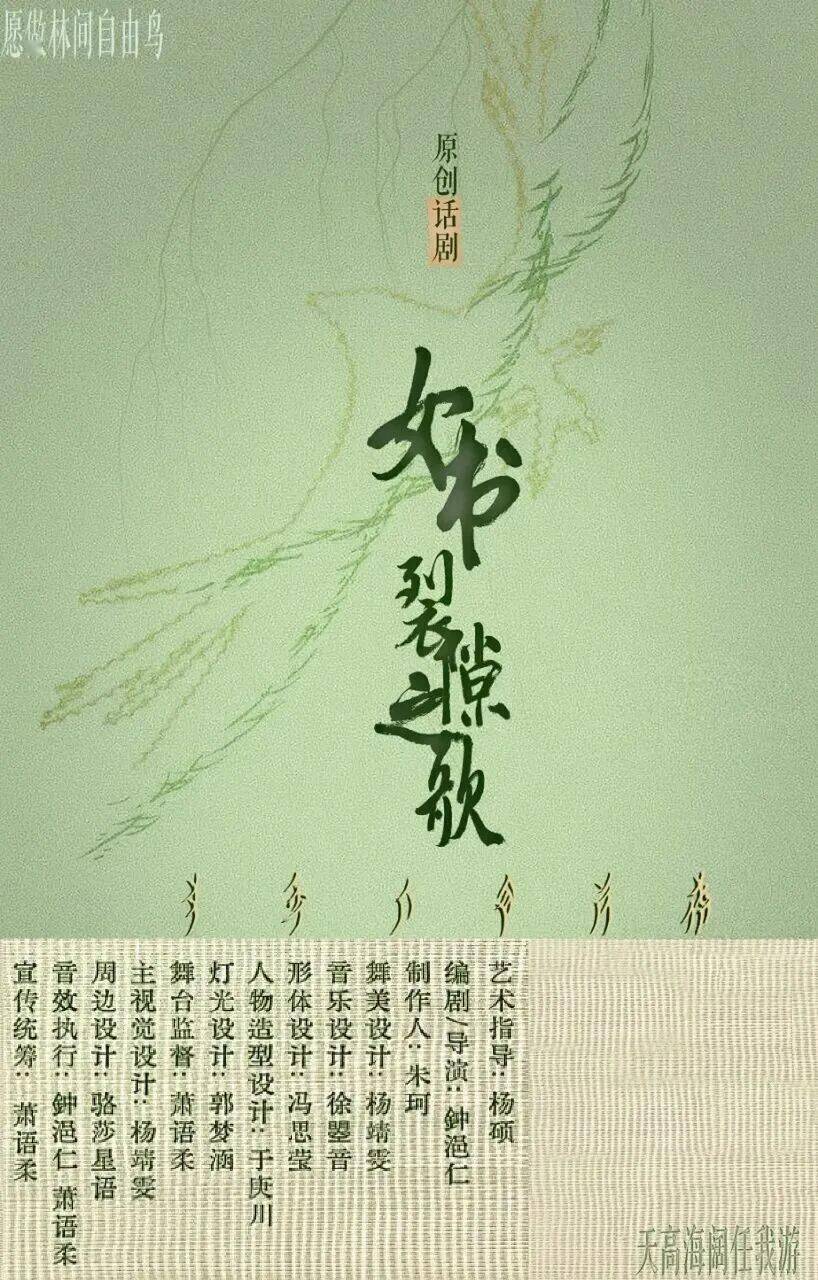 愿做林间自由鸟
原创话剧
女书
裂隙之歌
艺术指导：杨硕
编剧/导演：鈡浥仁
制作人：朱珂
舞美设计：杨靖雯
音乐设计：徐曌音
形体设计：冯思莹
人物造型设计：于庚川
灯光设计：郭梦涵
舞台监督：萧语柔
主视觉设计：杨靖雯
周边设计：骆莎星语
音效执行：鈡浥仁 萧语柔
宣传统筹：萧语柔
天高海阔任我游